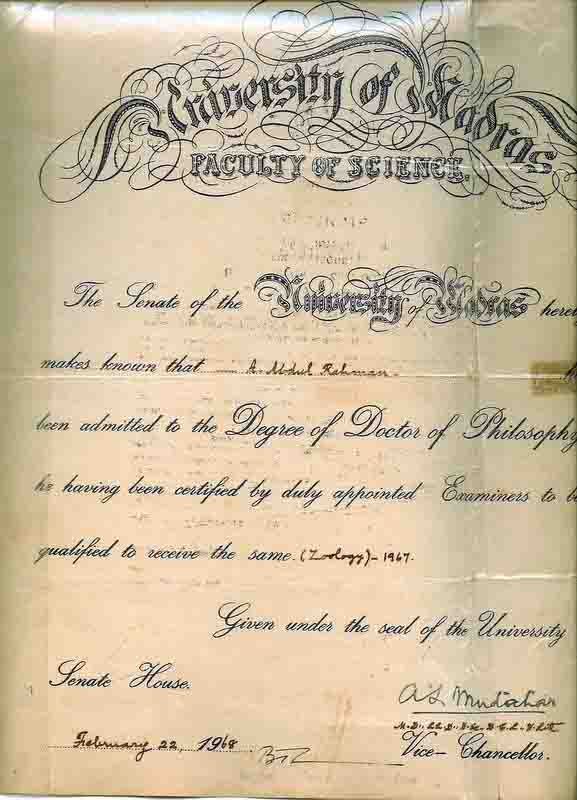 University of Madras
FACULTY OF SCIENCE.
The Senate of the University of Madras here
makes known that A. Abdul Rahman
been admitted to the Degree of Doctor of Philosophy
he having been certified by duly appointed Examiners to b
qualified to receive the same. (Zoology) - 1967.
Given under the seal of the University
Senate House.
A L Mudaliar
February 22, 1968
Vice-Chancellor.